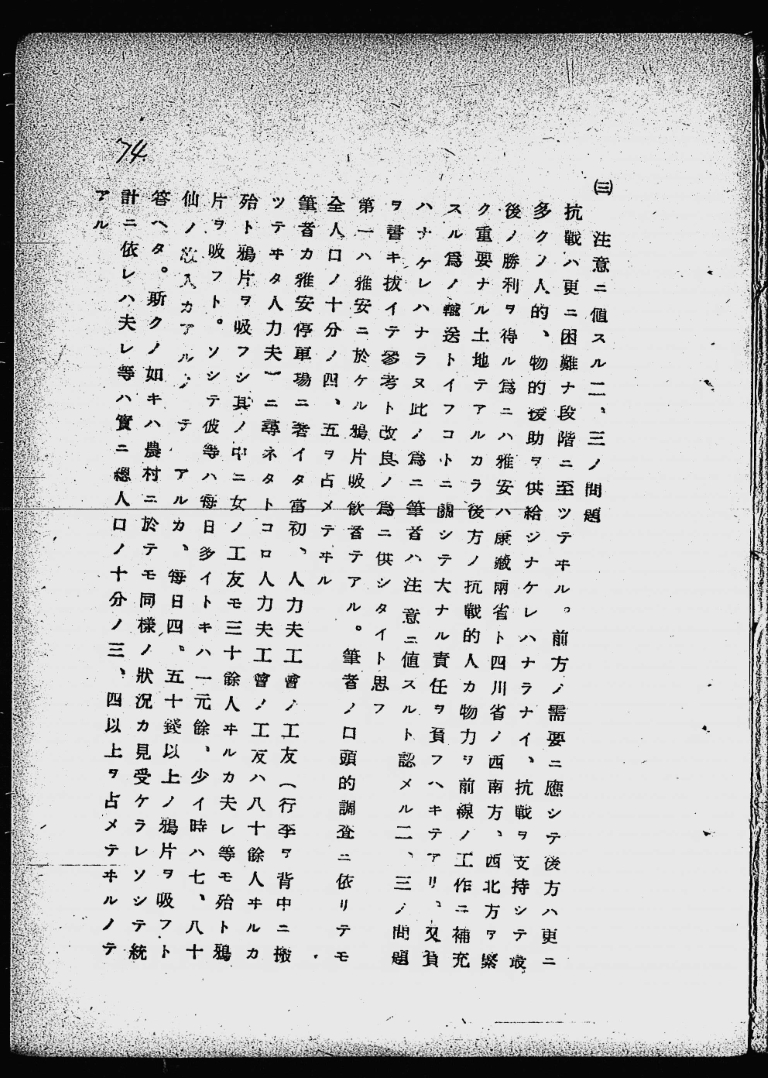 74
㈢ 注意ニ値スル二、三ノ問題
抗戰ハ更ニ困難ナ段階ニ至ツテヰル。前方ノ需要ニ應シテ後方ハ更ニ
多クノ人的、物的援助ヲ供給シナケレハナラナイ、抗戰ヲ支持シテ最
後ノ勝利ヲ得ル爲ニハ雅安ハ康藏兩省ト四川省ノ西南方、西北方ヲ繋
ク重要ナル土地テアルカラ後方ノ抗戰的人カ物力ヲ前線ノ工作ニ補充
スル爲ノ輸送トイフコトニ關シテ大ナル責任ヲ負フヘキテアリ、又負
ハナケレハナラヌ此ノ爲ニ筆者ハ注意ニ値スルト認メル二、三ノ問題
ヲ書キ拔イテ參考ト改良ノ爲ニ供シタイト思フ
第一ハ雅安ニ於ケル鴉片吸飮者テアル。筆者ノ口頭的調査ニ依リテモ
全人口ノ十分ノ四、五ヲ占メテヰル
筆者カ雅安停車場ニ著イタ當初、人力夫工會ノ工友(行李ヲ背中ニ搬
ツテヰタ人力夫)ニ尋ネタトコロ人力夫工會ノ工友ハ八十餘人ヰルカ
殆ト鴉片ヲ吸フシ其ノ中ニ女ノ工友モ三十餘人ヰルカ夫レ等モ殆ト鴉
片ヲ吸フト。ソシテ彼等ハ每日多イトキハ一元餘、少イ時ハ七、八十
仙ノ收入カアルノテアルカ、每日四、五十錢以上ノ鴉片ヲ吸フト
答ヘタ。斯クノ如キハ農村ニ於テモ同樣ノ狀況カ見受ケラレソシテ統
計ニ依レハ夫レ等ハ實ニ總人口ノ十分ノ三、四以上ヲ占メテヰルノテ
アル